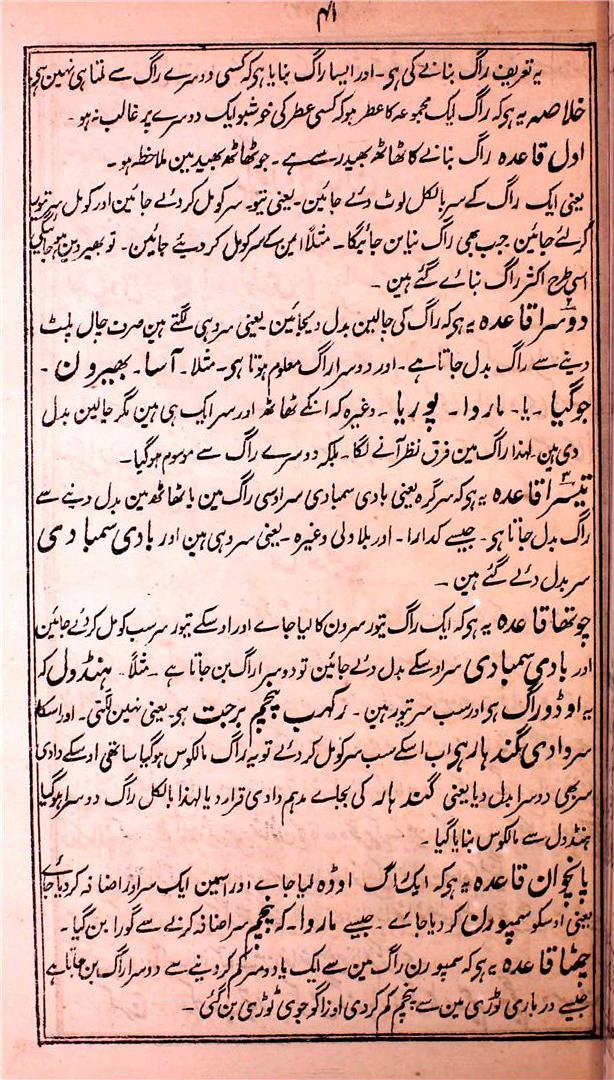 ۴۱
یہ تعریف راگ بنانے کی ہو۔ اور ایسا راگ بنایا ہو کہ کسی دوسرے راگ سے ملتا ہی نہین ہو
خلاصہ یہ ہو کہ راگ ایک مجموعہ کا عطر ہو کہ کسی عطر کی خوشبو ایک دوسرے پر غالب نہ ہو۔
اول قاعدہ راگ بنانے کا ٹھاٹھ بھید رسے ہے۔ جو ٹھاٹھ بھید مین ملاحظہ ہو۔
یعنی ایک راگ کے سر بالکل لوٹ دئے جائین۔ یعنی تیور سر کومل کر دئے جائین اور کومل سر تیور
کر لئے جائین جب بھی راگ نیا بن جائیگا۔ مثلاً ایمن کے سر کومل کر دیئے جائین۔ تو بھیروین ہو جائیگی
اسی طرح اکثر راگ بنائے گئے ہین۔
دوسرا قاعدہ یہ ہو کہ راگ کی چالین بدل دیجائین یعنی سر وہی لگتے ہین صرف چال پلٹ
دینے سے راگ بدل جاتا ہے۔ اور دوسرا راگ معلوم ہوتا ہو۔ مثلا۔ آسا۔ بھیرون۔
جوگیا۔ یا۔ ماروا۔ پوریا۔ وغیرہ کہ انکے ٹھاٹھ اور سر ایک ہی ہین مگر چالین بدل
دی ہین۔ لہذا راگ مین فرق نظر آنے لگا۔ بلکہ دوسرے راگ سے موسوم ہو گیا۔
تیسرا قاعدہ یہ ہو کہ سر گرہ یعنی بادی سمبادی سر اوسی راگ مین یا ٹھاٹھ مین بدل دینے سے
راگ بدل جاتا ہو۔ جیسے کدارا۔ اور بلاولی وغیرہ۔ یعنی سر وہی ہین اور بادی سمبادی
سر بدل دئے گئے ہین۔
چوتھا قاعدہ یہ ہو کہ ایک راگ تیور سرون کا لیا جاے اور اوسکے تیور سر سب کومل کر دئے جائین
اور بادی سمبادی سر اوسکے بدل دئے جائین تو دوسرا راگ بن جاتا ہے۔ مثلاً۔ ہنڈول کہ
یہ اوڈو راگ ہو اور سب سر تیور ہین۔ رکھرب پنچم برجت ہو یعنی نہین لگتی۔ اور اسکا
سر وادی گندھار ہو اب اسکے سب سر کومل کر دئے تو یہ راگ مالکوس ہو گیا ساتھی اوسکے وادی
سر بھی دوسرا بدل دیا یعنی گندھار کی بجاے مدہم وادی قرار دیا لہذا بالکل راگ دوسرا ہو گیا
ہنڈول سے مالکوس بنایا گیا۔
پانچوان قاعدہ یہ ہو کہ ایک راگ اوڈہ لیا جاے اور اسمین ایک سر اور اضافہ کر دیا جائے
یعنی اوسکو سمپورن کر دیا جاے۔ جیسے ماروا۔ کہ پنچم سر اضافہ کرنے سے گورا بن گیا۔
چھٹا قاعدہ یہ ہو کہ سمپورن راگ مین سے ایک یا دو سر کم کر دینے سے دوسرا راگ بن جاتا ہے
جیسے درباری ٹوڑی مین سے پنچم کم کر دی اوزاگوجری ٹوڑی بن گئی۔